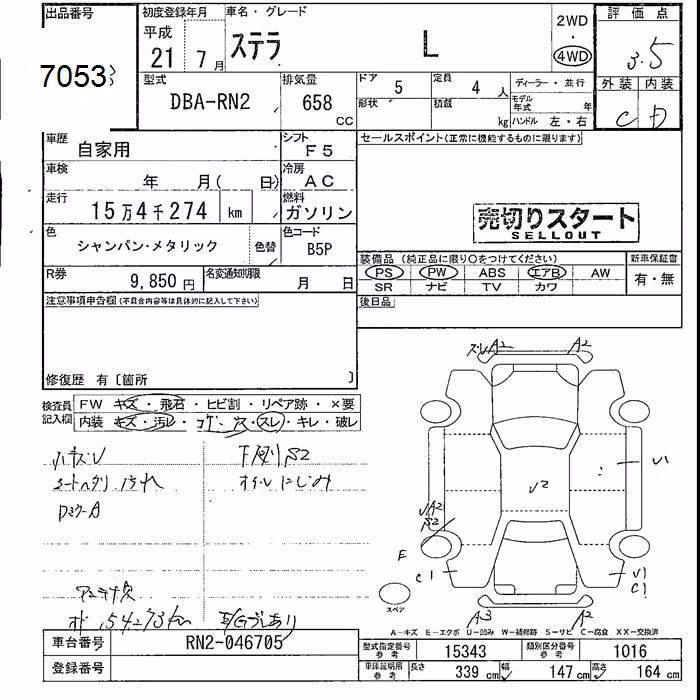 出品番号
7053
初度登録年月
平成
21 7月
車名・グレード
ステラ L
2WD
4WD
評価点
3.5
外装 内装
C D
型式
DBA-RN2
排気量
658
CC
ドア 5
定員 4 人
形状
積載 kg
ディーラー・並行
モデル年式 年
ハンドル 左・右
車歴
自家用
シフト
F5
セールスポイント(正常に機能するものに限ります)
車検
年 月( 日)
冷房
AC
走行
15万4千274 km
燃料
ガソリン
売切りスタート
SELLOUT
色
シャンパン・メタリック
色替
色コード
B5P
装備品(純正品に限り○をつけてください)
PS PW ABS エアB AW
SR ナビ TV カワ
新車保証書
有・無
R券
9,850円
名変通知期限
月 日
後日品
注意事項申告欄(不具合内容等は具体的に記入して下さい)
修復歴 有〔箇所 〕
検査員記入欄
FW キズ・飛石・ヒビ割・リペア跡・×要
内装 キズ・汚レ・コゲ・穴・スレ・キレ・破レ
ハキズU
シートヘタリ 汚れ
下廻りS2
オイルにじみ
アンテナ欠
スレA2
A2
U1
U2
UA2
S2
E
C1
U1
C1
A3
A2
スペア
A-キズ E-エクボ U-凹み W-補修跡 S-サビ C-腐食 XX-交換済
車台番号
RN2-046705
登録番号
型式指定番号
参考
15343
類別区分番号
参考
1016
車庫証明用
参考
長さ 339 cm
幅 147 cm
高さ 164 cm